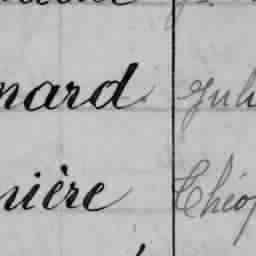 nard Juli
nière Théop